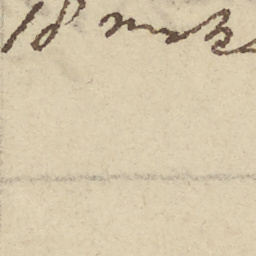 18 mks